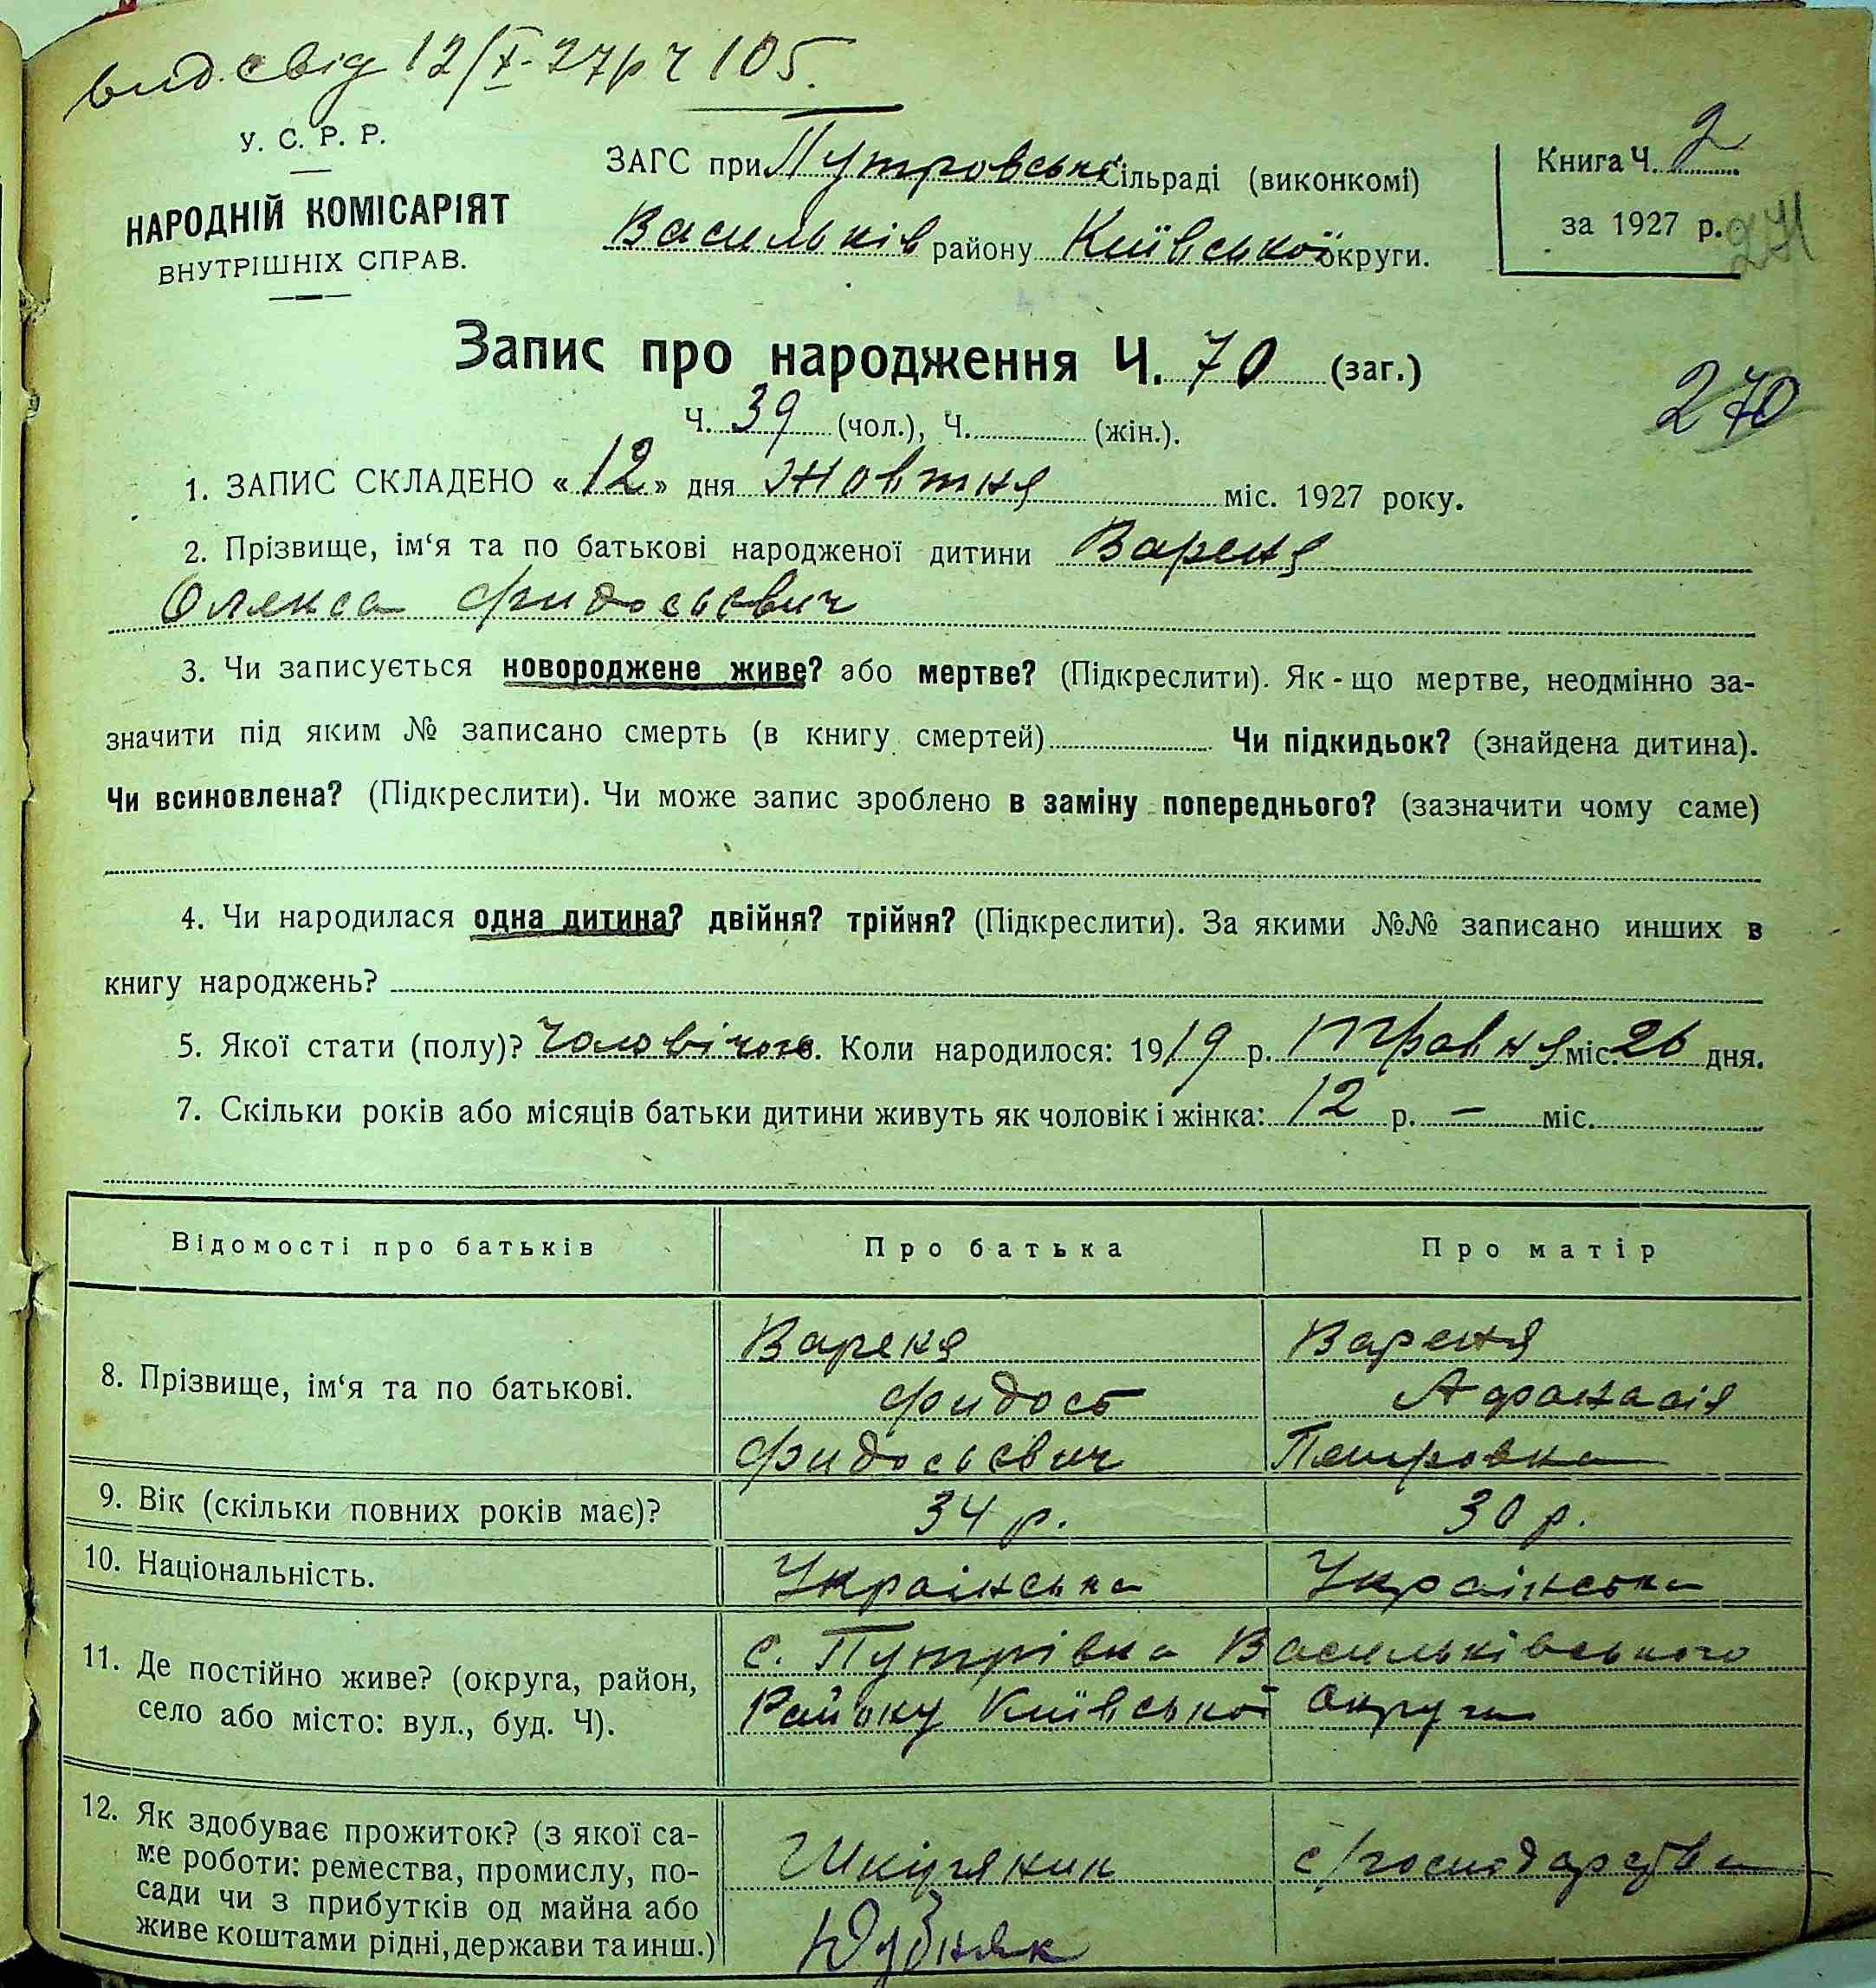 вид. свід 12/X-27р Ч 105.
У. С. Р. Р.
НАРОДНІЙ КОМІСАРІЯТ
ВНУТРІШНІХ СПРАВ.
ЗАГС при Путровські сільраді (виконкомі)
Васильків району Київської округи.
Книга Ч. 2
за 1927 р.
271
Запис про народження Ч. 70 (заг.)
270
Ч. 39 (чол.), Ч. (жін.).
1. ЗАПИС СКЛАДЕНО «12» дня Жовтня міс. 1927 року.
2. Прізвище, ім‘я та по батькові народженої дитини Вареня
Олекса Фидосьєвич
3. Чи записується новороджене живе? або мертве? (Підкреслити). Як-що мертве, неодмінно за-
значити під яким № записано смерть (в книгу смертей) Чи підкидьок? (знайдена дитина).
Чи всиновлена? (Підкреслити). Чи може запис зроблено в заміну попереднього? (зазначити чому саме)
4. Чи народилася одна дитина? двійня? трійня? (Підкреслити). За якими №№ записано инших в
книгу народжень?
5. Якої стати (полу)? Чоловічого. Коли народилося: 1919 р. Травня міс. 26 дня.
7. Скільки років або місяців батьки дитини живуть як чоловік і жінка: 12 р. — міс.
Відомості про батьків
Про батька
Про матір
8. Прізвище, ім‘я та по батькові.
Вареня
Фидось
Фидосьєвич
Вареня
Афанасія
Петровна
9. Вік (скільки повних років має)?
34 р.
30 р.
10. Національність.
Українська
Українська
11. Де постійно живе? (округа, район,
село або місто: вул., буд. Ч).
с. Путрівка Васильківського
Району Київської округи
12. Як здобуває прожиток? (з якої са-
ме роботи: ремества, промислу, по-
сади чи з прибутків од майна або
живе коштами рідні, держави та инш.)
с/господарства